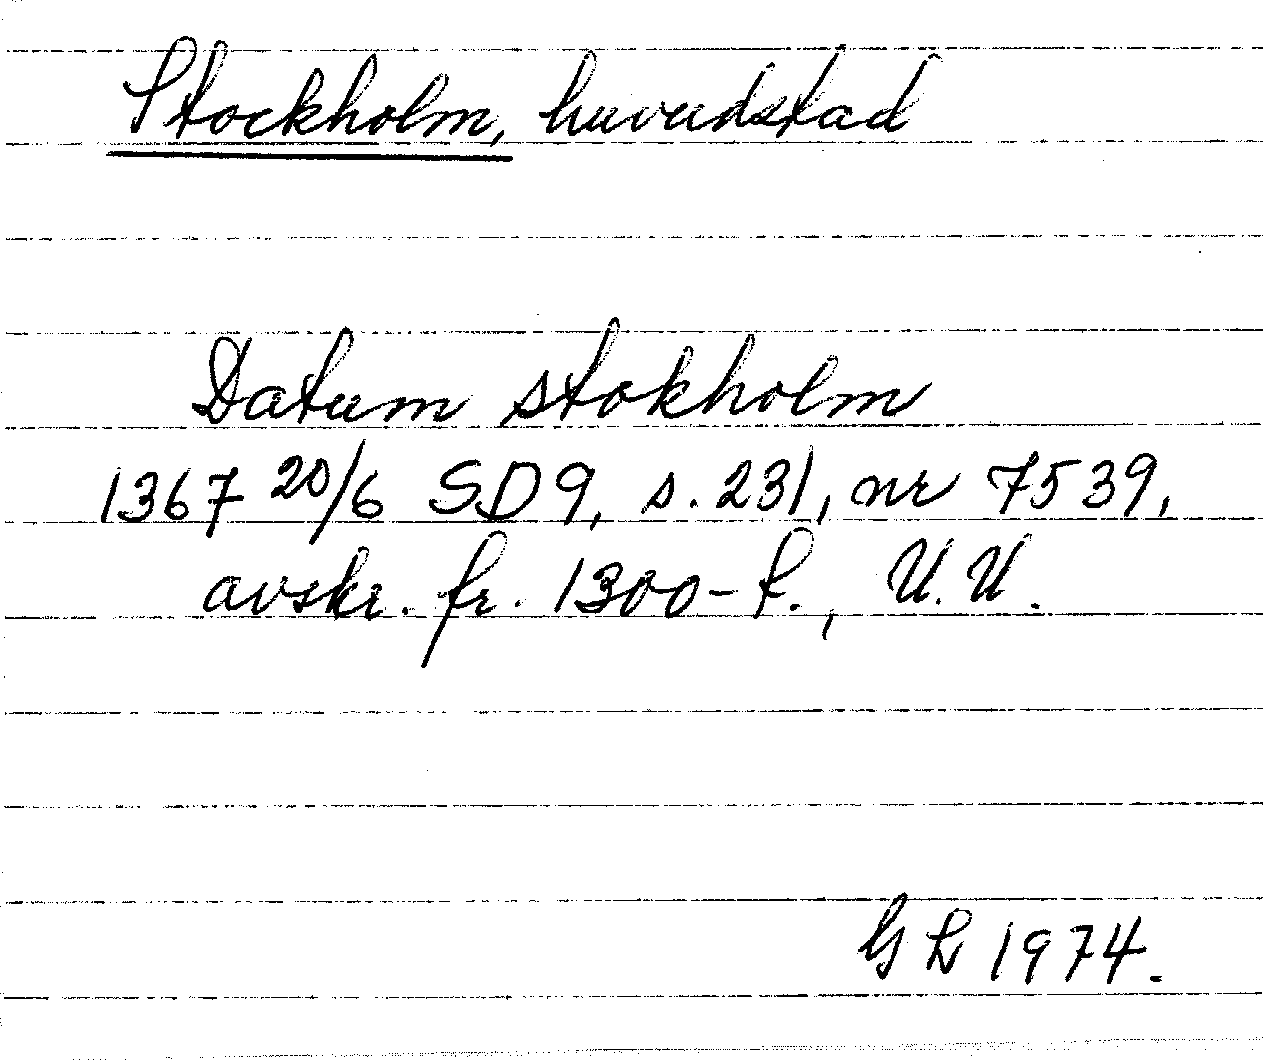 Stockholm, huvudstad
Datum stokholm
1367 20/6 SD9, s. 231, nr 7539,
avskr. fr. 1300-t., U.U.
1974.